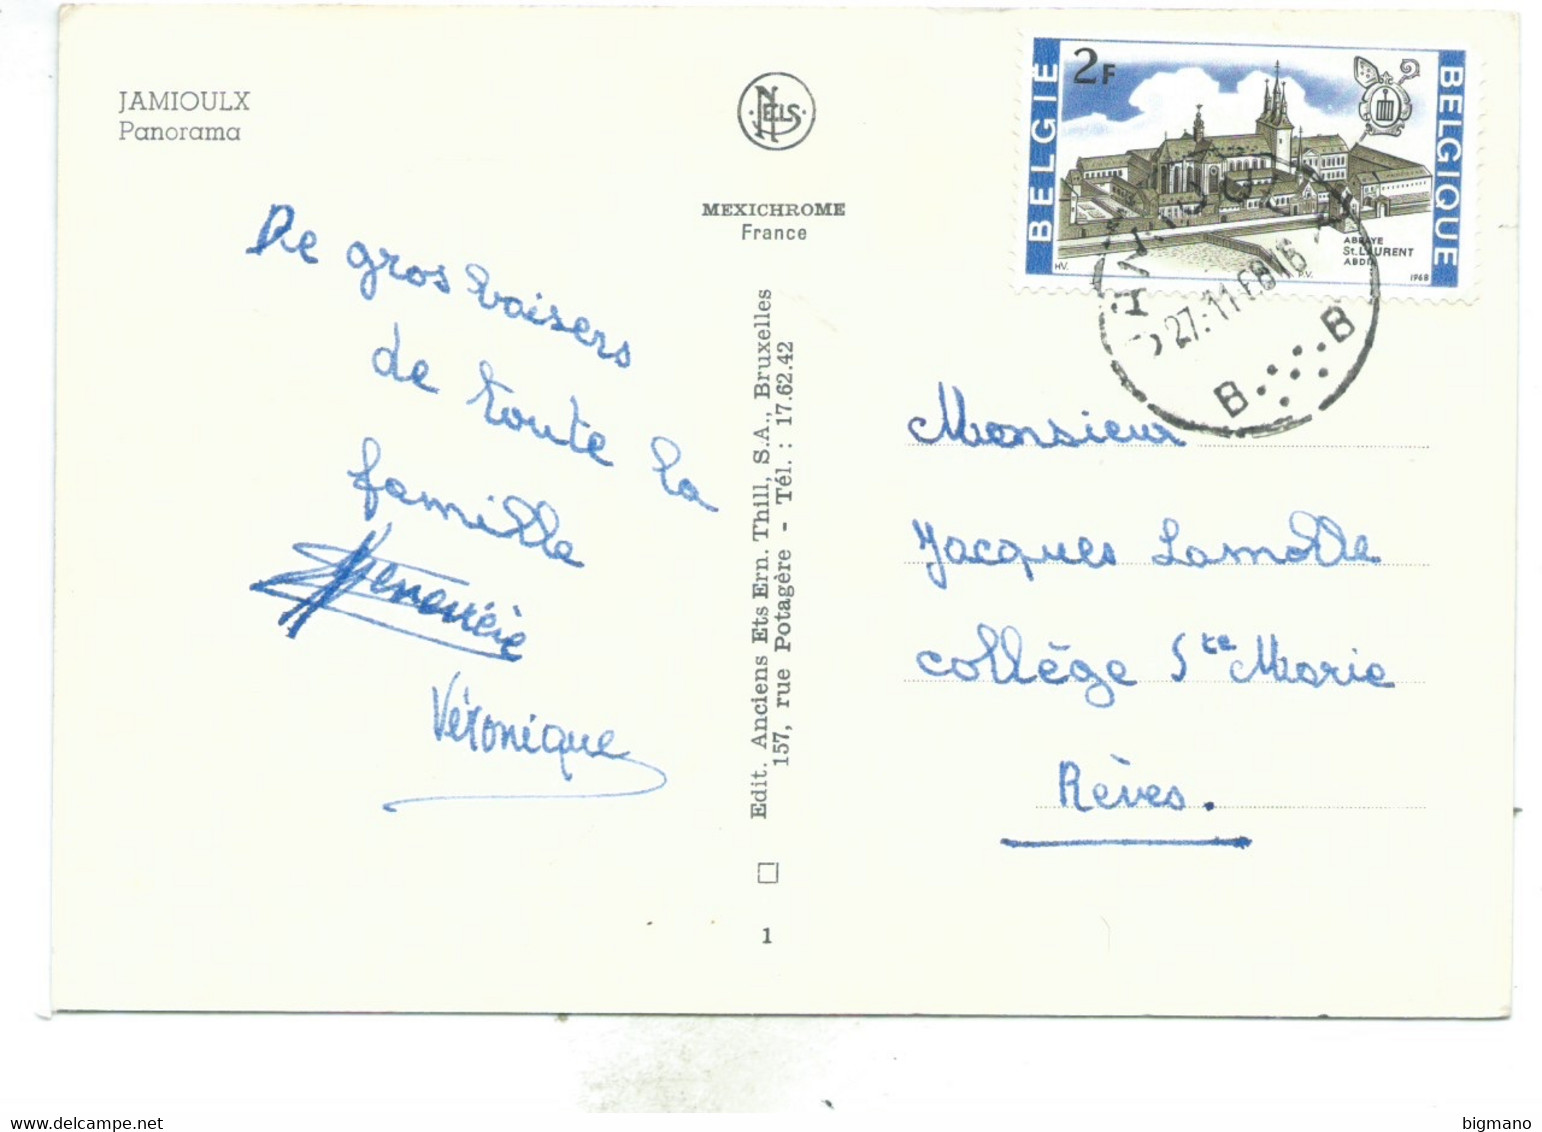 JAMIOULX
Panorama
NELS
MEXICHROME
France
De gros baisers
de toute la
famille
Véronique
Edit. Anciens Ets Ern. Thill, S.A., Bruxelles
157, rue Potagère - Tél. : 17.62.42
1
BELGIË
2F
BELGIQUE
ABBAYE
St. LAURENT
ABDIJ
HV.
P.V.
1968
27.-11.68
B B
Monsieur
Jacques Lamolle
collège Ste Marie
Rèves.
bigmano